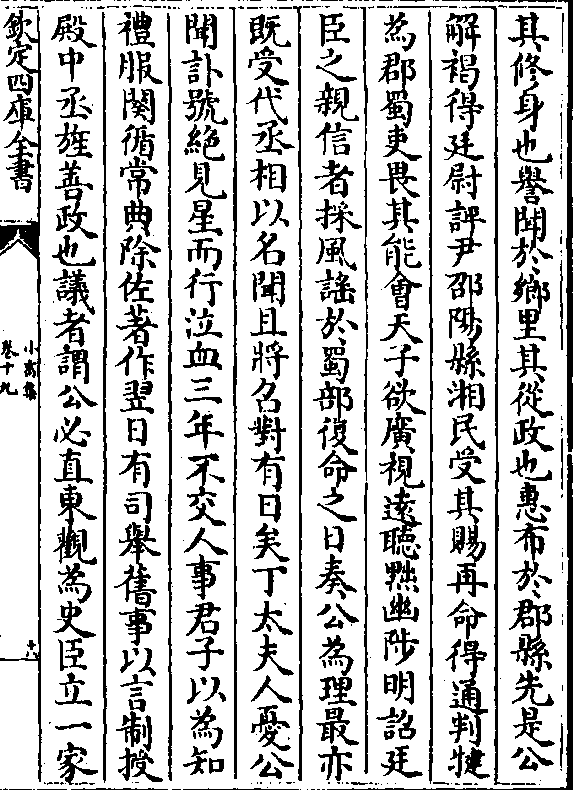 其修身也譽聞於鄉里其從政也惠布於郡縣先是公
解褐得廷尉評尹邵陽縣湘民受其賜再命得通判犍
為郡蜀吏畏其能會天子欲廣視遠聽黜幽陟明詔廷
臣之親信者採風謠於蜀部復命之日奏公為理最亦
既受代丞相以名聞且將名對有日矣丁太夫人憂公
聞訃號絶見星而行泣血三年不交人事君子以為知
禮服闋循常典除佐著作翌日有司舉舊事以言制授
殿中丞旌善政也議者謂公必直東觀為史臣立一家
欽定四庫全書
小畜集
卷十九
十八